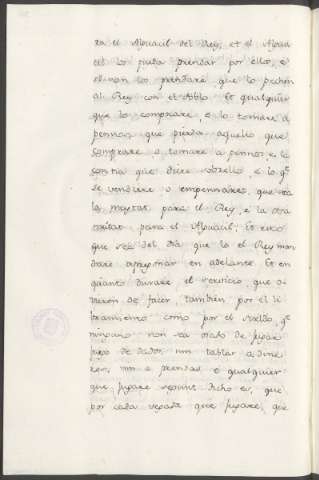 ra el Alguacil del Rey, et el Algua
cil lo pueda prendar por ello, e
si non los prendare que lo pechen
al Rey con el doblo. Et qualquier
que lo comprare, o lo tomare a
pennos que pierda aquello que
comprare o tomare a pennos, e la
contia que diere sobrello e lo q.
se vendiere o empennare, que sea
la meytad para el Rey, e la otra
meitad para el Alguacil; Et esto
que sea del dia que lo el Rey man
dare apregonar en adelante. Et en
quanto durare el servicio, que di
vieren de facer, tambien por el li
bramiento como por el sueldo, q.
ninguno non sea osado de jugar
juego de dados, nin tablas a dine
ros, nin a prendas e qualquier
que jugare segunt dicho es, que
por cada vegada que jugare, que